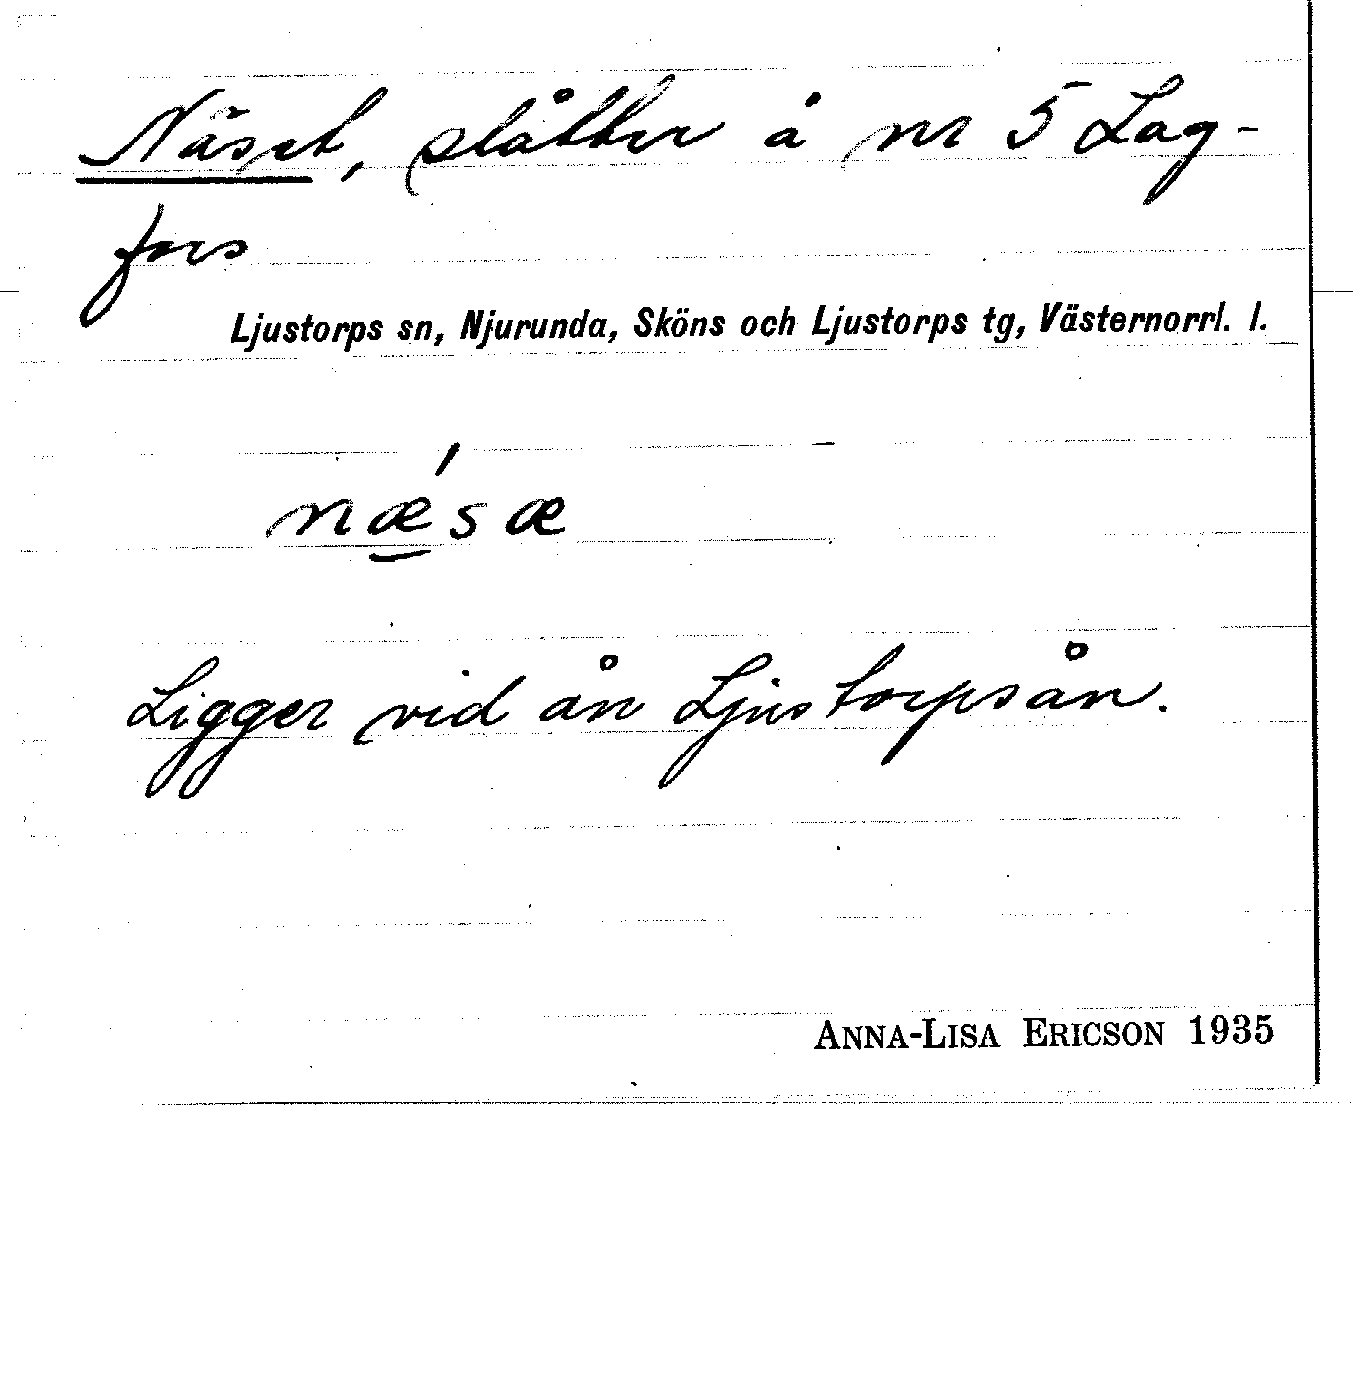 Näset, slåtter å nr 5 Lag-
fors
Ljustorps sn, Njurunda, Sköns och Ljustorps tg, Västernorrl. l.
nǽ̲sæ
Ligger vid ån Ljustorpsån.
ANNA-LISA ERICSON 1935